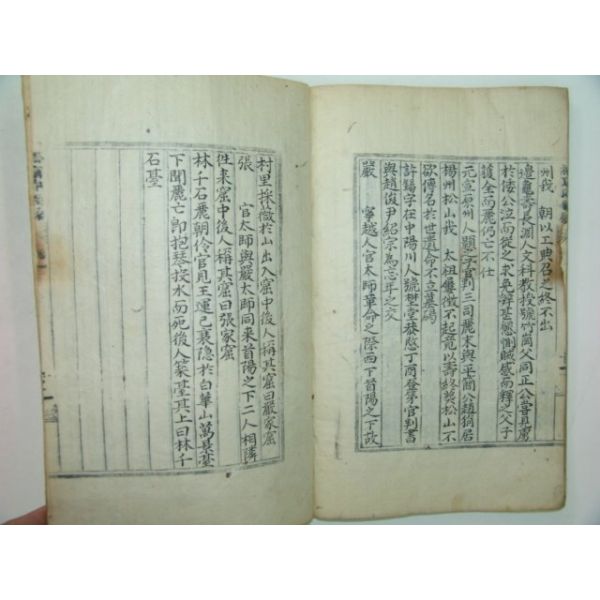 州我 朝以工典召之終不出
邊龜壽長淵人文科教授號竹窩父同正公嘗見虜
於倭公泣而從之求免辭甚懇惻賊感而釋之父子
獲全而麗仍亡不仕
元宣原州人 官判三司麗末與平簡公趙狷居
楊州松山我 太祖屢徵不起竟以壽終葬松山不
欲傳名於世遺命不立墓碣
許錫字在中陽川人號埜堂 愍丁酉登第官判書
與趙浚尹紹宗為忘年之交
嚴 寧越人官太師革命之際西下首陽之下故
村里採薇於山出入窟中後人稱其窟曰嚴家窟
張 官太師與嚴太師同来首陽之下二人相隣
徃来窟中後人稱其窟曰張家窟
林千石麗朝伶官見王運已衰隱於白華山萬景臺
下聞麗亡即抱琴投水而死後人築臺其上曰林千
石臺